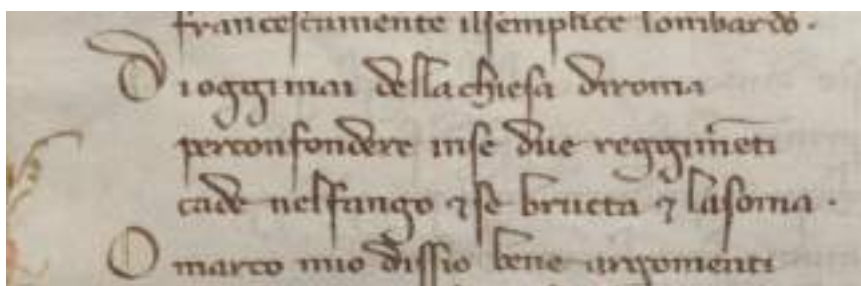 francescamente ilsemplice lombardo.
Di oggimai dellachiesa diroma
perconfondere inse due reggimēti
cade nelfango ⁊ se bructa ⁊ lasoma.
O marco mio dissio bene argomenti